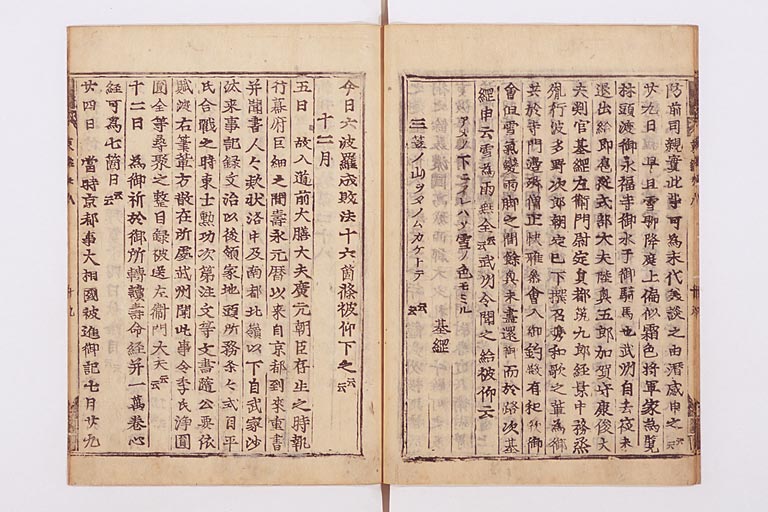 防前司親實此等可為末代美談之由潜感申之云云
廿九日　早旦雪聊降庭上偏似霜色将軍家為覧
林頭渡御永福寺御水干御騎馬也武州自去夜未
退出給即扈從式部大夫陸奥五郎加賀守康俊大
夫判官基綱左衛門尉定員都筑九郎經景中務丞
胤行波多野次郎朝定已下撰召携和歌之輩為御
共於寺門邊卿僧正快雅參會入御釣殿有和歌御
會但雪氣變雨脚之間餘興未盡還御而於路次基
綱申云雪為雨無全云云武州令聞之給被仰云
アメノ下ニフレハソ雪ノ色モミル
三笠ノ山ヲタノムカケトテ云云　基綱
今日六波羅成敗法十六箇條被仰下之云云
十二月
五日　故入道前大膳大夫廣元朝臣存生之時執
行幕府巨細之間壽永元暦以来自京都到来重書
并聞書人々款状洛中及南都北嶺以下自武家沙
汰来事記録文治以後領家地頭所務条々式目平
氏合戰之時東士勲功次第注文等文書隨公要依
賦渡右筆輩方散在所處武州聞此事令季氏浄圓
圓全等尋聚之整目録被送左衛門大夫云云
十二日　為御祈於御所轉讀壽命經并一萬巻心
經可為七箇日云云
廿四日　當時京都事大相國被進御記七月廿九